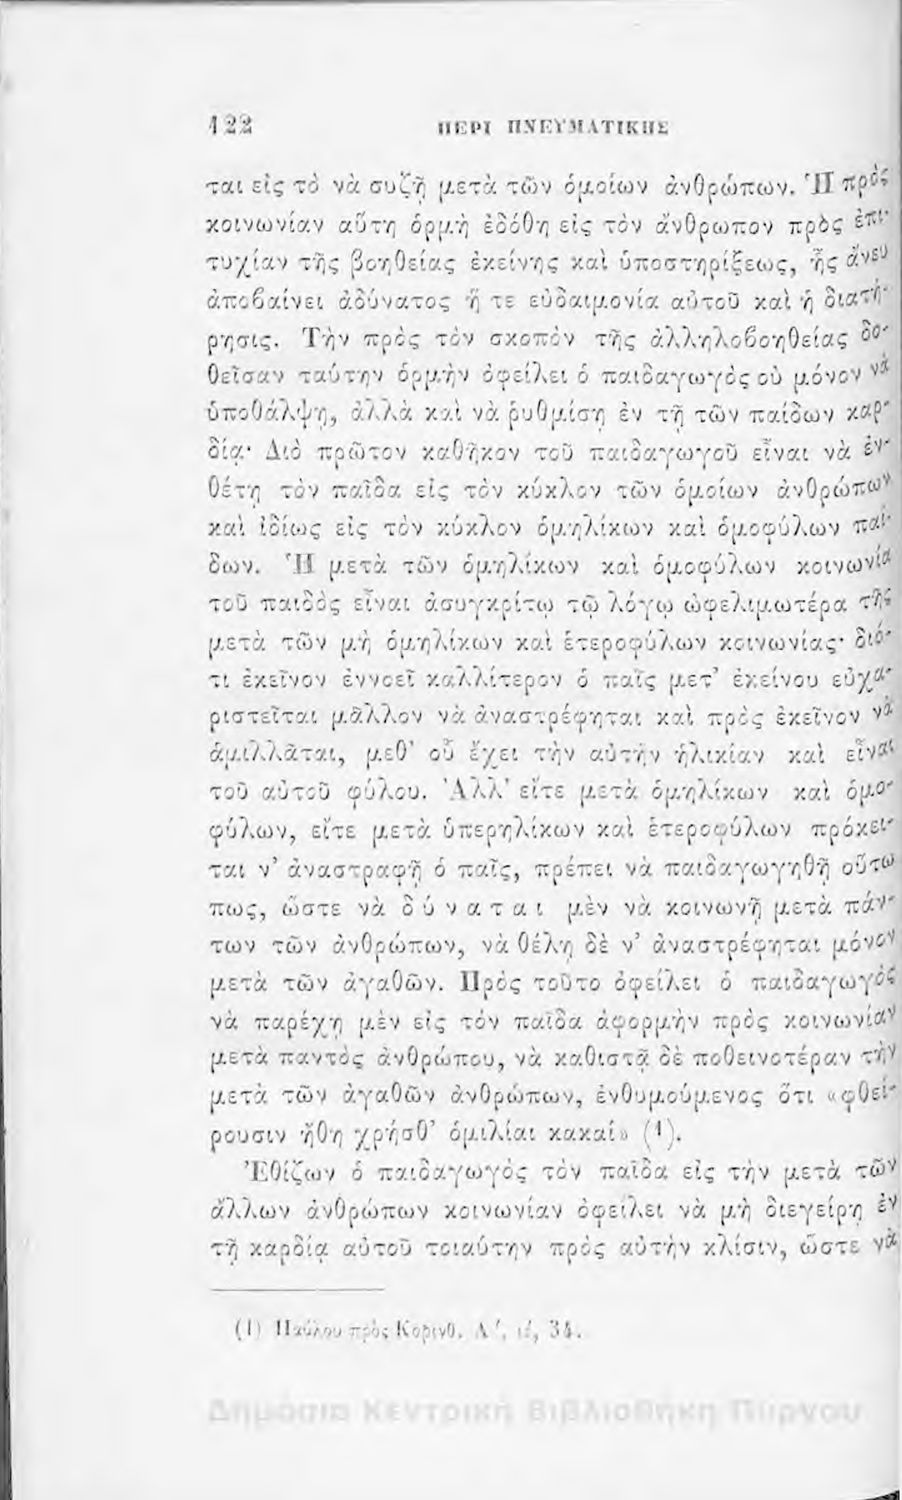 122 ΠΕΡΙ ΠΝΕΥΜΑΤΙΚΗΣ
ται εἰς τὸ νὰ συζῇ μετὰ τῶν ὁμοίων ἀνθρώπων. Ἡ πρὸς
κοινωνίαν αὕτη ὁρμὴ ἐδόθη εἰς τὸν ἄνθρωπον πρὸς ἐπι-
τυχίαν τῆς βοηθείας ἐκείνης καὶ ὑποστηρίξεως, ἧς ἄνευ
ἀποβαίνει ἀδύνατος ἥ τε εὐδαιμονία αὐτοῦ καὶ ἡ διατή-
ρησις. Τὴν πρὸς τὸν σκοπὸν τῆς ἀλληλοβοηθείας δο-
θεῖσαν ταύτην ὁρμὴν ὀφείλει ὁ παιδαγωγὸς οὐ μόνον νὰ
ὑποθάλψῃ, ἀλλὰ καὶ νὰ ῥυθμίσῃ ἐν τῇ τῶν παίδων καρ-
δίᾳ· Διὸ πρῶτον καθῆκον τοῦ παιδαγωγοῦ εἶναι νὰ ἐν-
θέτῃ τὸν παῖδα εἰς τὸν κύκλον τῶν ὁμοίων ἀνθρώπων
καὶ ἰδίως εἰς τὸν κύκλον ὁμηλίκων καὶ ὁμοφύλων παί-
δων. Ἡ μετὰ τῶν ὁμηλίκων καὶ ὁμοφύλων κοινωνία
τοῦ παιδὸς εἶναι ἀσυγκρίτῳ τῷ λόγῳ ὠφελιμωτέρα τῆς
μετὰ τῶν μὴ ὁμηλίκων καὶ ἑτεροφύλων κοινωνίας· διό-
τι ἐκεῖνον ἐννοεῖ καλλίτερον ὁ παῖς μετ’ ἐκείνου εὐχα-
ριστεῖται μᾶλλον νὰ ἀναστρέφηται καὶ πρὸς ἐκεῖνον νὰ
ἁμιλλᾶται, μεθ’ οὗ ἔχει τὴν αὐτὴν ἡλικίαν καὶ εἶναι
τοῦ αὐτοῦ φύλου. Ἀλλ’ εἴτε μετὰ ὁμηλίκων καὶ ὁμο-
φύλων, εἴτε μετὰ ὑπερηλίκων καὶ ἑτεροφύλων πρόκει-
ται ν’ ἀναστραφῇ ὁ παῖς, πρέπει νὰ παιδαγωγηθῇ οὕτω
πως, ὥστε νὰ δύναται μὲν νὰ κοινωνῇ μετὰ πάν-
των τῶν ἀνθρώπων, νὰ θέλῃ δὲ ν’ ἀναστρέφηται μόνον
μετὰ τῶν ἀγαθῶν. Πρὸς τοῦτο ὀφείλει ὁ παιδαγωγὸς
νὰ παρέχῃ μὲν εἰς τὸν παῖδα ἀφορμὴν πρὸς κοινωνίαν
μετὰ παντὸς ἀνθρώπου, νὰ καθιστᾷ δὲ ποθεινοτέραν τὴν
μετὰ τῶν ἀγαθῶν ἀνθρώπων, ἐνθυμούμενος ὅτι «φθεί-
ρουσιν ἤθη χρήσθ’ ὁμιλίαι κακαί» (1).
Ἐθίζων ὁ παιδαγωγὸς τὸν παῖδα εἰς τὴν μετὰ τῶν
ἄλλων ἀνθρώπων κοινωνίαν ὀφείλει νὰ μὴ διεγείρῃ ἐν
τῇ καρδίᾳ αὐτοῦ τοιαύτην πρὸς αὐτὴν κλίσιν, ὥστε νὰ
(1) Παύλου πρὸς Κορινθ. Α΄, ιέ, 34.
Δημόσια Κεντρική Βιβλιοθήκη Πύργου